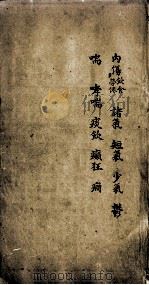 内傷飲食勞倦 諸氣 短氣 少氣 鬱
喘 哮喘 痰飲 癲狂 癇